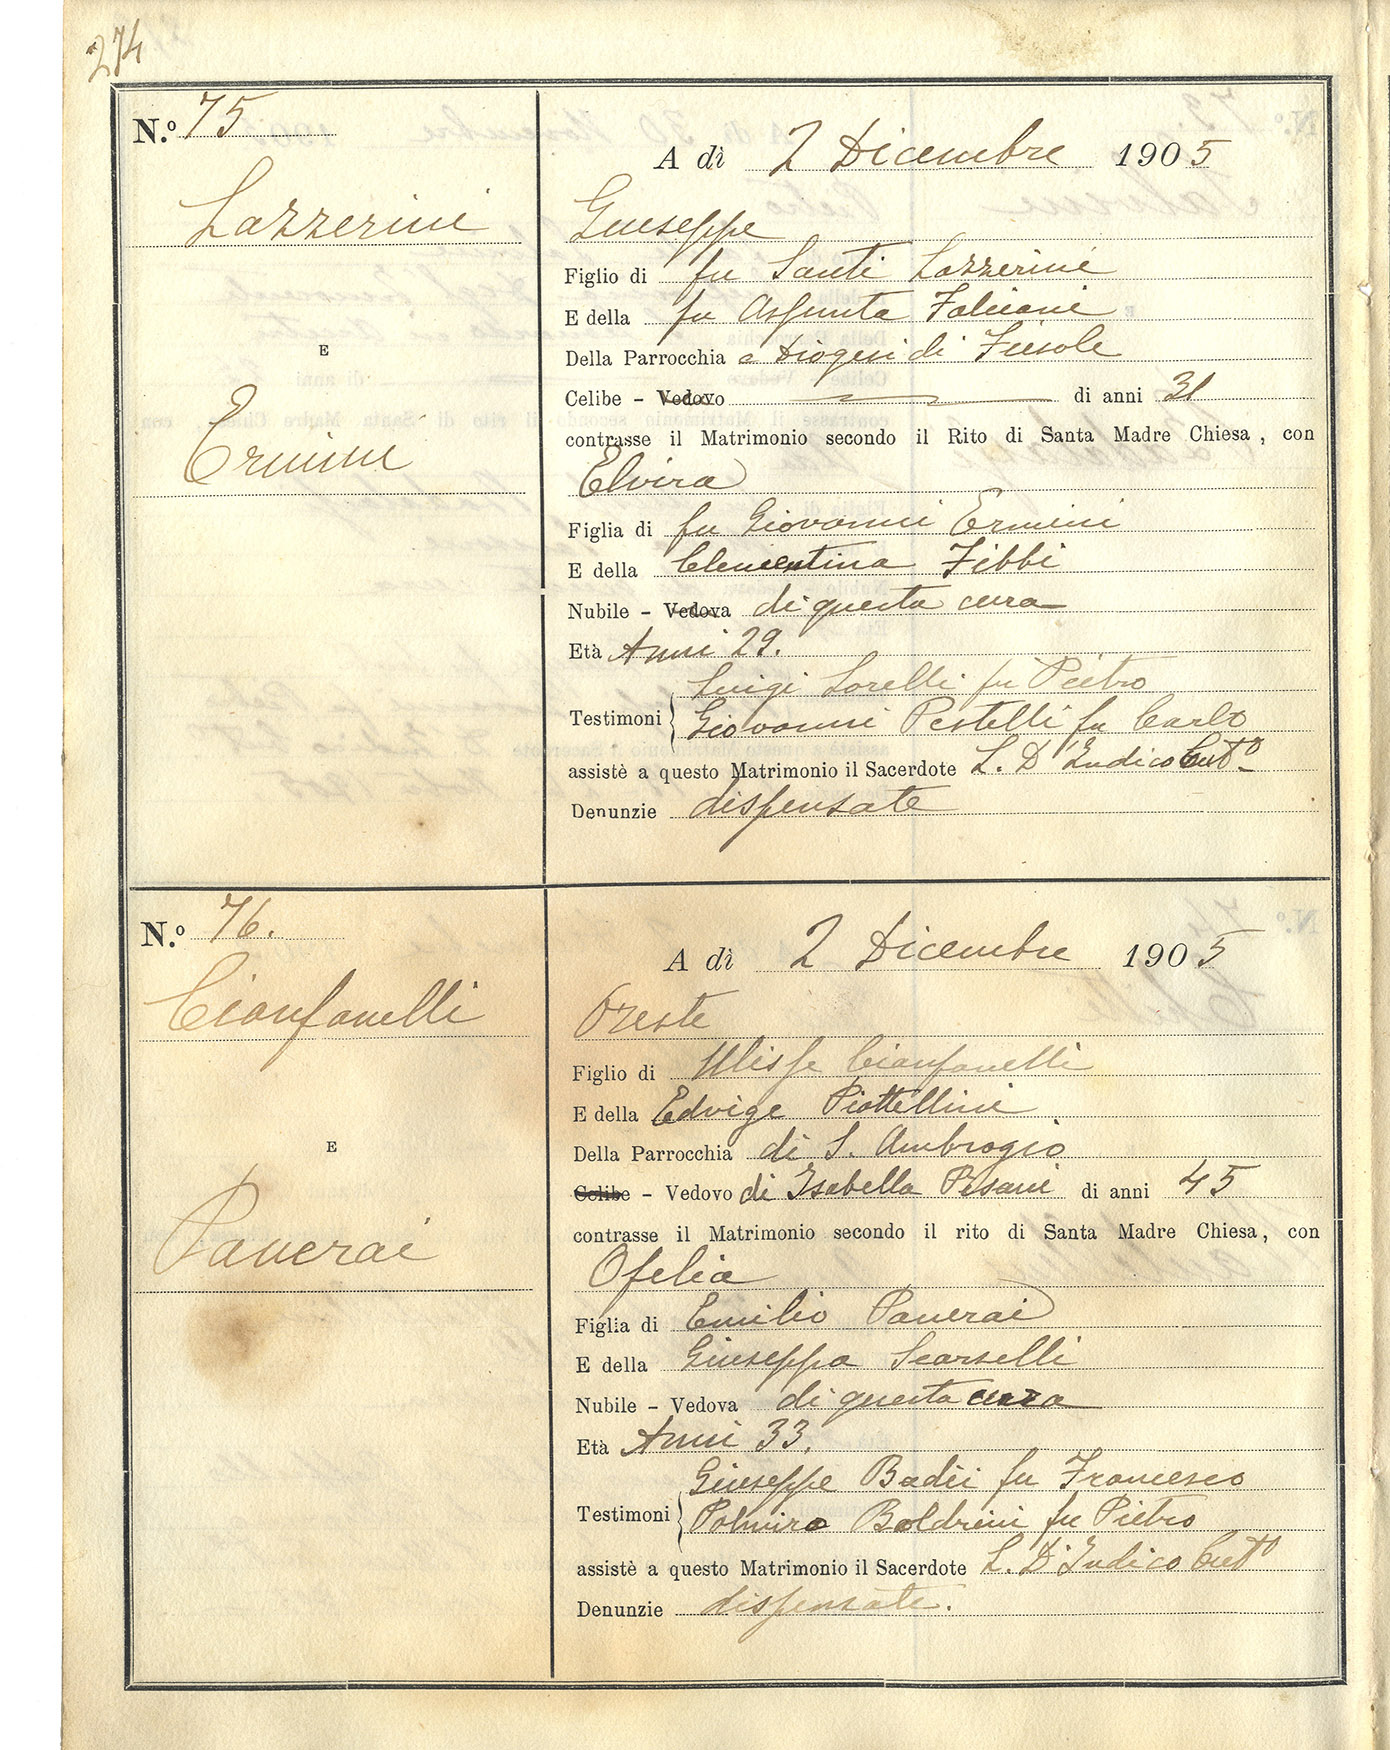 274
N.º 75
Lazzerini
E
Ermini
A dì 2 Dicembre 1905
Giuseppe
Figlio di fu Santi Lazzerini
E della fu Assunta Falciani
Della Parrocchia e Diogesi di Fiesole
Celibe - Vedovo di anni 31
contrasse il Matrimonio secondo il Rito di Santa Madre Chiesa, con
Elvira
Figlia di fu Giovanni Ermini
E della Clementina Fibbi
Nubile - Vedova di questa cura
Età Anni 29.
Testimoni Luigi Lorelli fu Pietro
Giovanni Pestelli fu Carlo
assistè a questo Matrimonio il Sacerdote L. D'Indico Cutº
Denunzie dispensate
N.º 76.
Cianfanelli
E
Panerai
A dì 2 Dicembre 1905
Oreste
Figlio di Ulisse Cianfanelli
E della Edvige Piattellini
Della Parrocchia di S. Ambrogio
Celibe - Vedovo di Isabella Pisani di anni 45
contrasse il Matrimonio secondo il rito di Santa Madre Chiesa, con
Ofelia
Figlia di Emilio Panerai
E della Giuseppa Scarselli
Nubile - Vedova di questa cura
Età Anni 33.
Testimoni Giuseppe Badii fu Francesco
Palmiro Boldrini fu Pietro
assistè a questo Matrimonio il Sacerdote L. D'Indico Cutº
Denunzie dispensate.